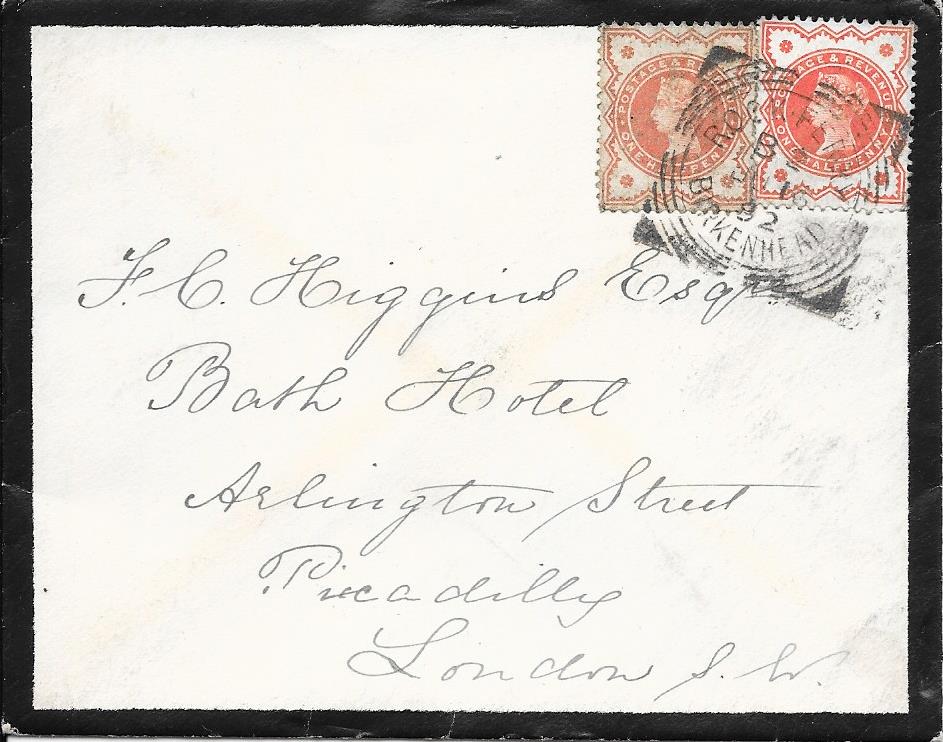 POSTAGE & REVENUE
ONE HALFPENNY
POSTAGE & REVENUE
ONE HALFPENNY
ROCK FERRY
B
16
92
BIRKENHEAD
F. C. Higgins Esqre
Bath Hotel
Arlington Street
Piccadilly
London S. W.